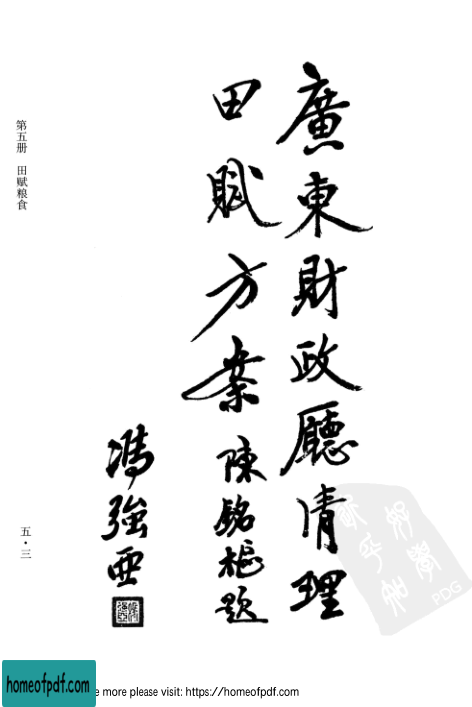 廣東財政廳清理
田賦方案 陳銘樞題
馮強亞
第五册 田赋粮食
五·三
PDG
homeofpdf.com
e more please visit: https://homeofpdf.com